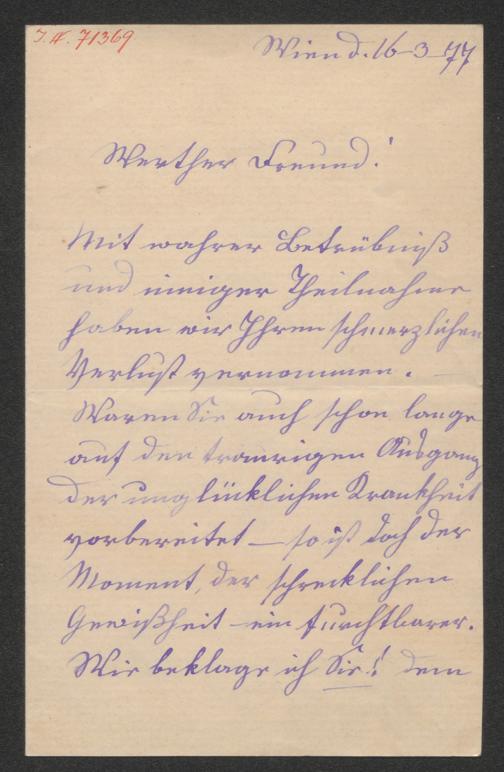 I.N. 71369
Wien d. 16-3-77
Werther Freund!
Mit wahrer Betrübniß
und inniger Theilnahme
haben wir Ihren schmerzlichen
Verlust vernommen.
Waren Sie auch schon lange
auf den traurigen Ausgang
der unglücklichen Krankheit
vorbereitet — so ist doch der
Moment, der schrecklichen
Gewißheit ein furchtbarer.
Wie beklage ich Sie! dem